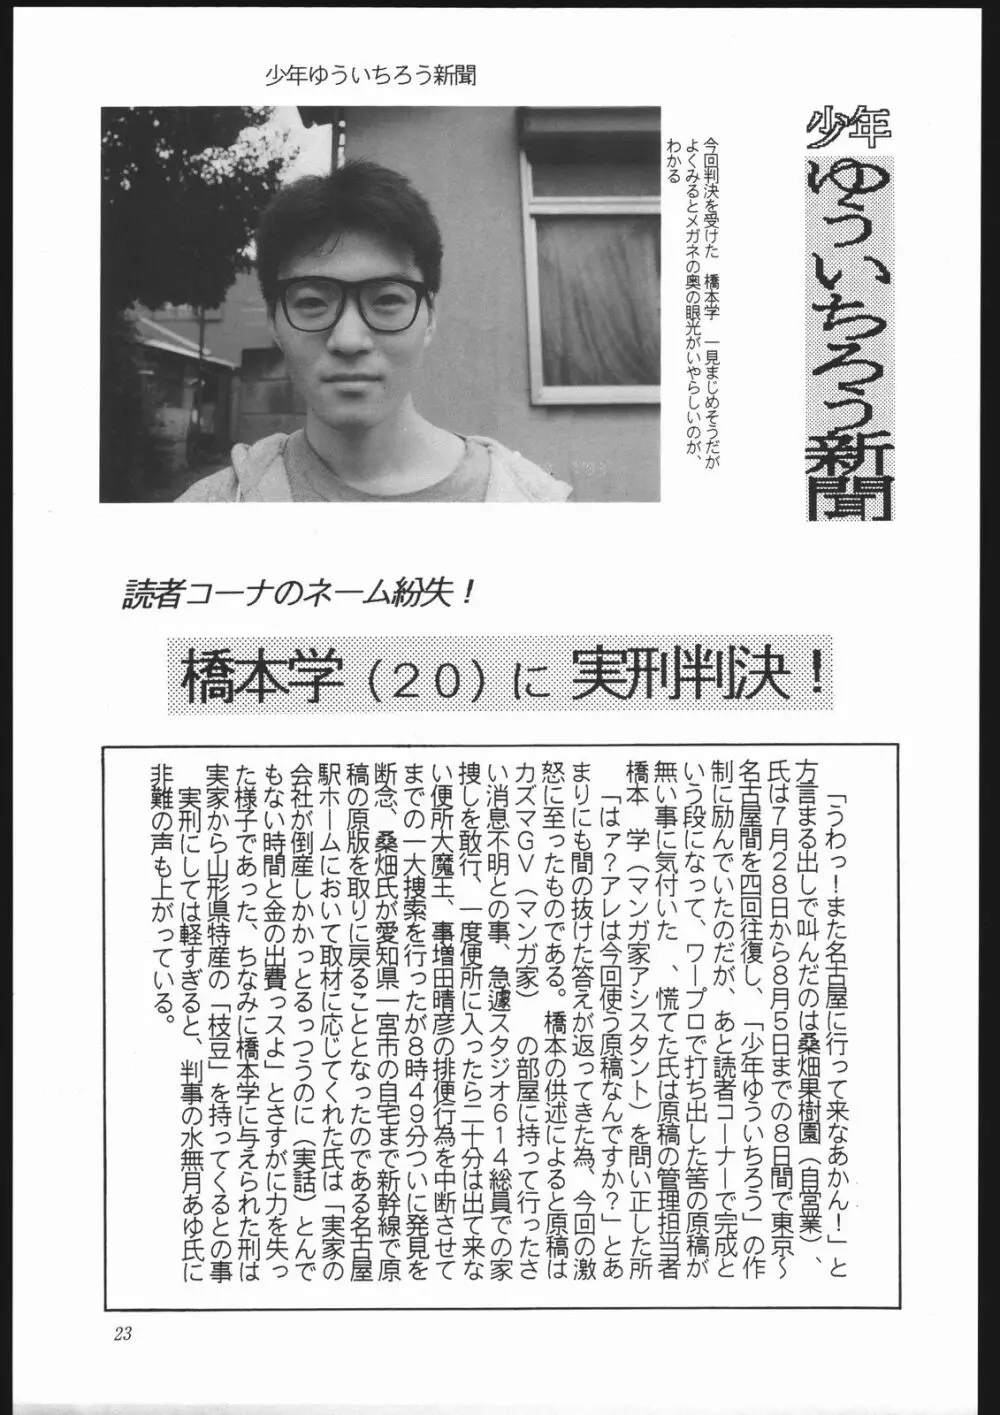 少年ゆういちろう新聞
少年
ゆういちろう新聞
今回判決を受けた　橋本学　一見まじめそうだが
よくみるとメガネの奥の眼光がいやらしいのが、
わかる
読者コーナのネーム紛失！
橋本学（２０）に 実刑判決！
「うわっ！また名古屋に行って来なあかん！」と
方言まる出しで叫んだのは桑畑果樹園（自営業）、
氏は７月２８日から８月５日までの８日間で東京〜
名古屋間を四回往復し、「少年ゆういちろう」の作
制に励んでいたのだが、あと読者コーナーで完成と
いう段になって、ワープロで打ち出した筈の原稿が
無い事に気付いた　、慌てた氏は原稿の管理担当者
橋本　学（マンガ家アシスタント）を問い正した所
「はァ？アレは今回使う原稿なんですか？」とあ
まりにも間の抜けた答えが返ってきた為、今回の激
怒に至ったものである。橋本の供述によると原稿は
カズマＧＶ（マンガ家）　の部屋に持って行ったさ
い消息不明との事、急遽スタジオ６１４総員での家
捜しを敢行、一度便所に入ったら二十分は出て来な
い便所大魔王、事増田晴彦の排便行為を中断させて
までの一大捜索を行ったが８時４９分ついに発見を
断念、桑畑氏が愛知県一宮市の自宅まで新幹線で原
稿の原版を取りに戻ることとなったのである名古屋
駅ホームにおいて取材に応じてくれた氏は「実家の
会社が倒産しかかっとるっつうのに（実話）とんで
もない時間と金の出費っスよ」とさすがに力を失っ
た様子であった、ちなみに橋本学に与えられた刑は
実家から山形県特産の「枝豆」を持ってくるとの事
実刑にしては軽すぎると、判事の水無月あゆ氏に
非難の声も上がっている。
23